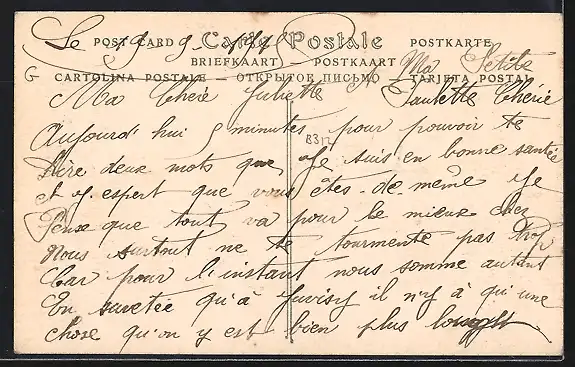 Le 9 9
POST CARD Carte Postale POSTKARTE
BRIEFKAART — POSTKAART Ma Petite
G CARTOLINA POSTALE — ОТКРЫТОК ПИСЬМО — TARJETA POSTAL
Ma Cheré Juliette A Paulette Chérie
Aujourd'hui 5 minutes pour pouvoir te
B312
Dire deux mots que Je suis en bonne santée
et J. espert que vous êtes-de-même Je
Peux que tout va pour le mieux chez
Nous surtout ne te tourmente pas trop
Car pour l'instant nous somme autant
En suretée qu'à Juvisy il n'y à qu'une
chose qu'on y est bien plus